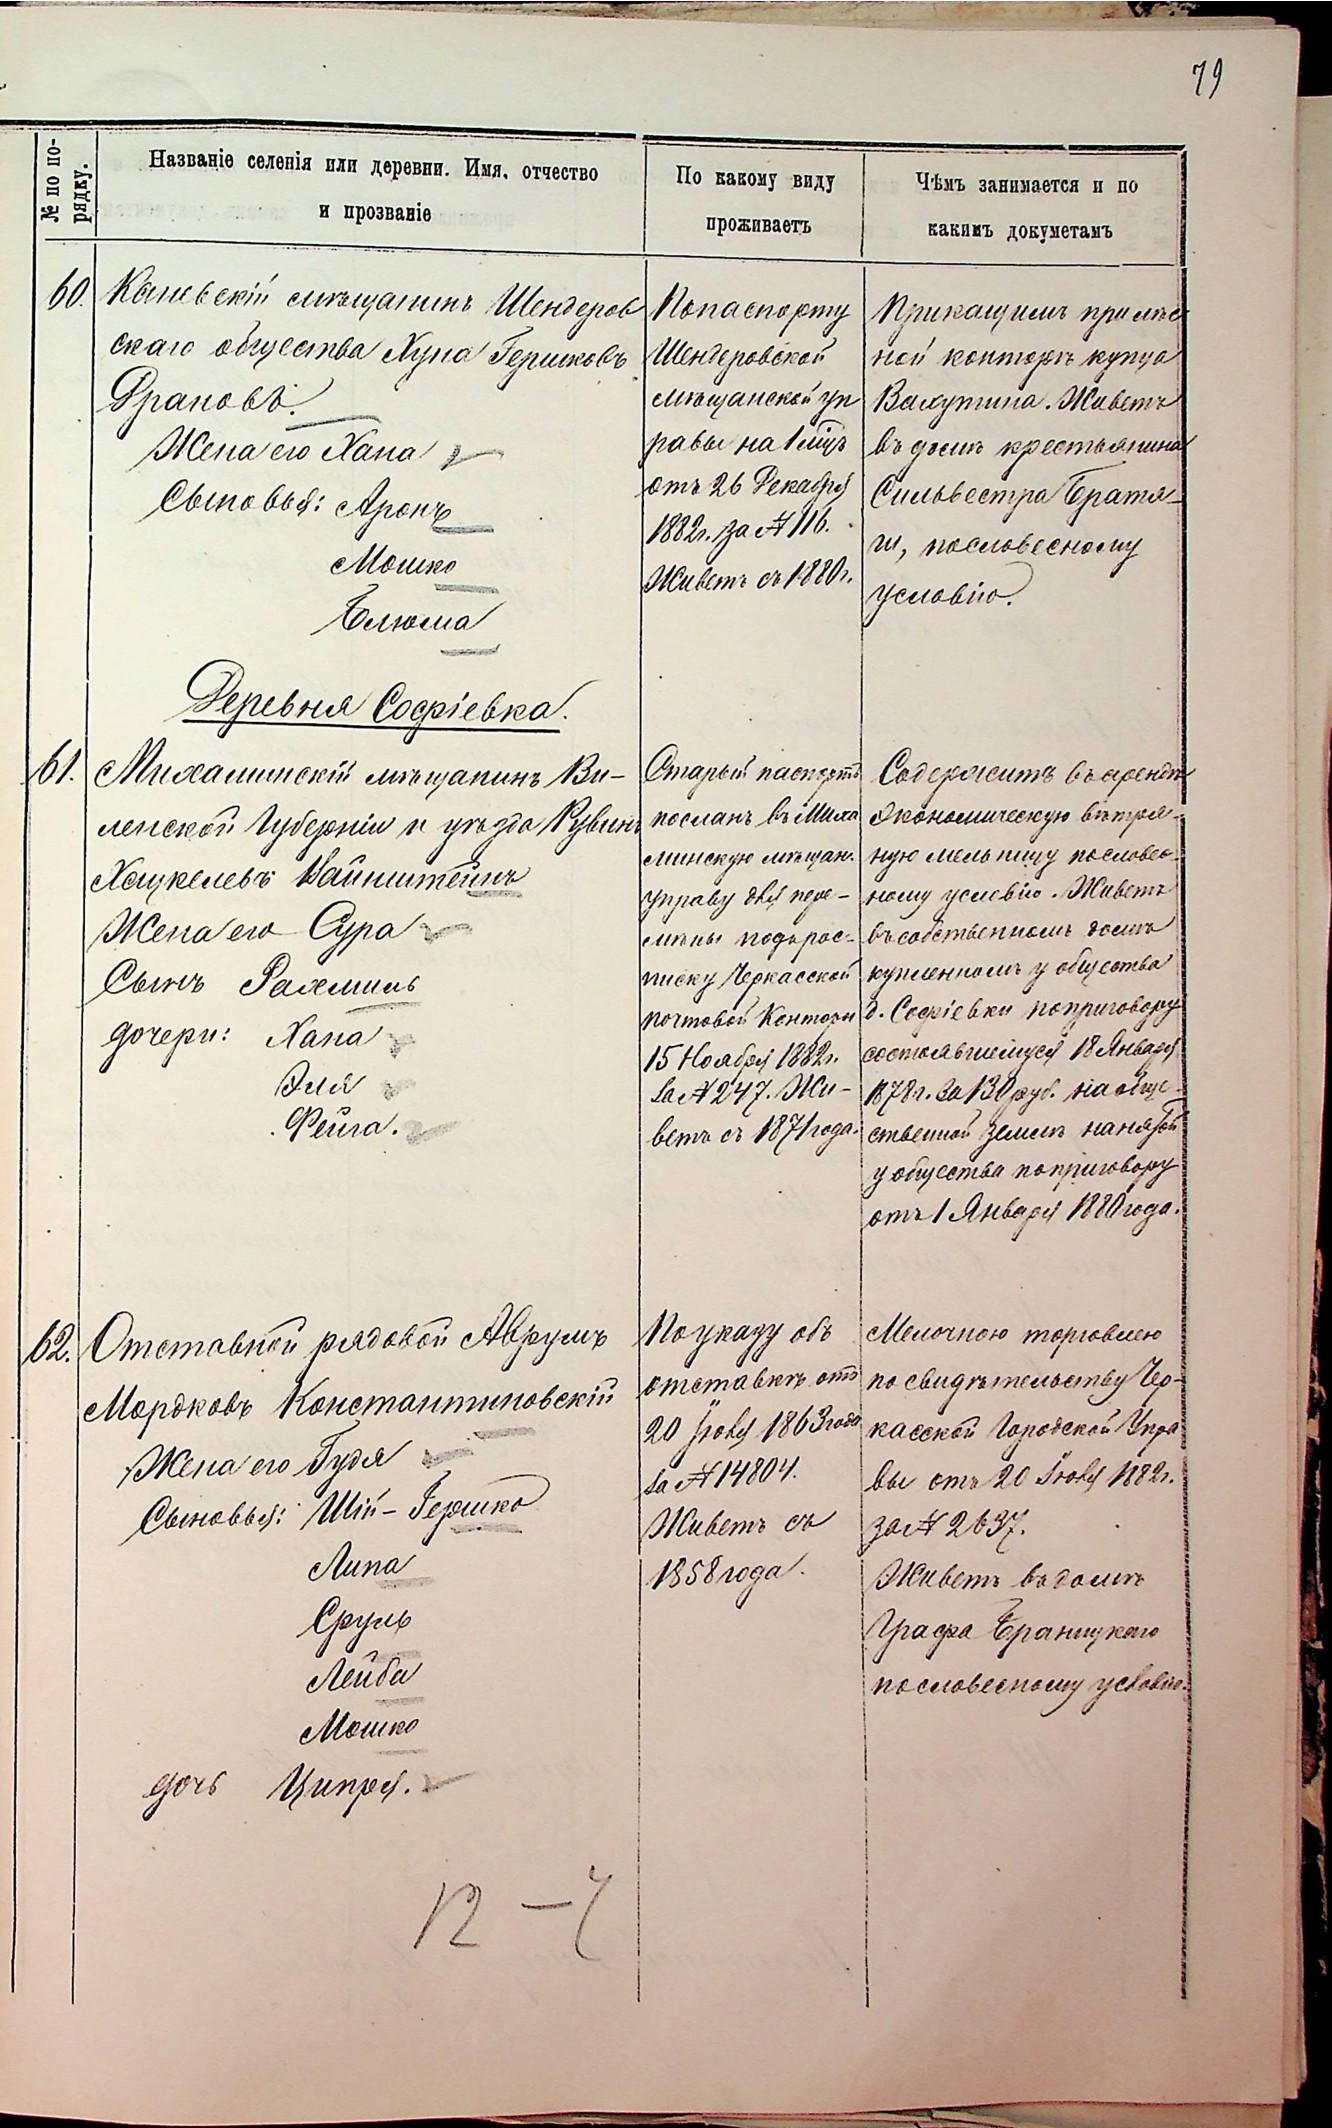 79
№ по по-
рядку.
Названіе селенія или деревни. Имя, отчество
и прозваніе
По какому виду
проживаетъ
Чѣмъ занимается и по
какимъ докуметамъ
60.
Каневскій мѣщанинъ Шендеров
скаго общества Хуна Гершковъ
Драновъ.
Жена его Хана
Сыновья: Аронъ
Мошко
Блюма
По паспорту
Шендеровской
мѣщанской уп
равы на 1 мѣц.
отъ 26 Декабря
1882г. за № 116.
Живетъ съ 1880г.
Прикащикъ при лѣс
ной конторѣ купца
Вахутина. Живетъ
въ домѣ крестьянина
Сильвестра Братя-
ги, по словесному
условію.
Деревня Софіевка.
61.
Михалишскій мѣщанинъ Ви-
ленской Губерніи и уѣзда Рувинъ
Хацкелевъ Вайнштейнъ
Жена его Сура
Сынъ Рахмиль
дочери: Хана
Эля
Фейга.
Старый паспортъ
посланъ въ Миха
лишскую мѣщан.
управу для пере-
мѣны подъ рос-
писку Черкасской
почтовой Конторы
15 Ноября 1882г.
за № 247. Жи-
ветъ съ 1871 года.
Содержитъ въ арендѣ
экономическую вѣтря-
ную мельницу по словес-
ному условію. Живетъ
въ собственномъ домѣ
купленномъ у общества
д. Софіевки по приговору
состоявшемуся 18 Января
1878г. за 130 руб. на обще-
ственной землѣ нанятой
у общества по приговору
отъ 1 Января 1880 года.
62.
Отставной рядовой Аврумъ
Мордковъ Константиновскій
Жена его Гудя
Сыновья: Шій-Гершко
Липа
Сруль
Лейба
Мошко
дочь Ципря.
По указу объ
отставкѣ отъ
20 Іюня 1863 года
за № 14804.
Живетъ съ
1858 года.
Мелочною торговлею
по свидѣтельству Чер-
касской Городской Упра
вы отъ 20 Іюля 1882г.
за № 2637.
Живетъ въ домѣ
Графа Браницкаго
по словесному условію.
12 – 7